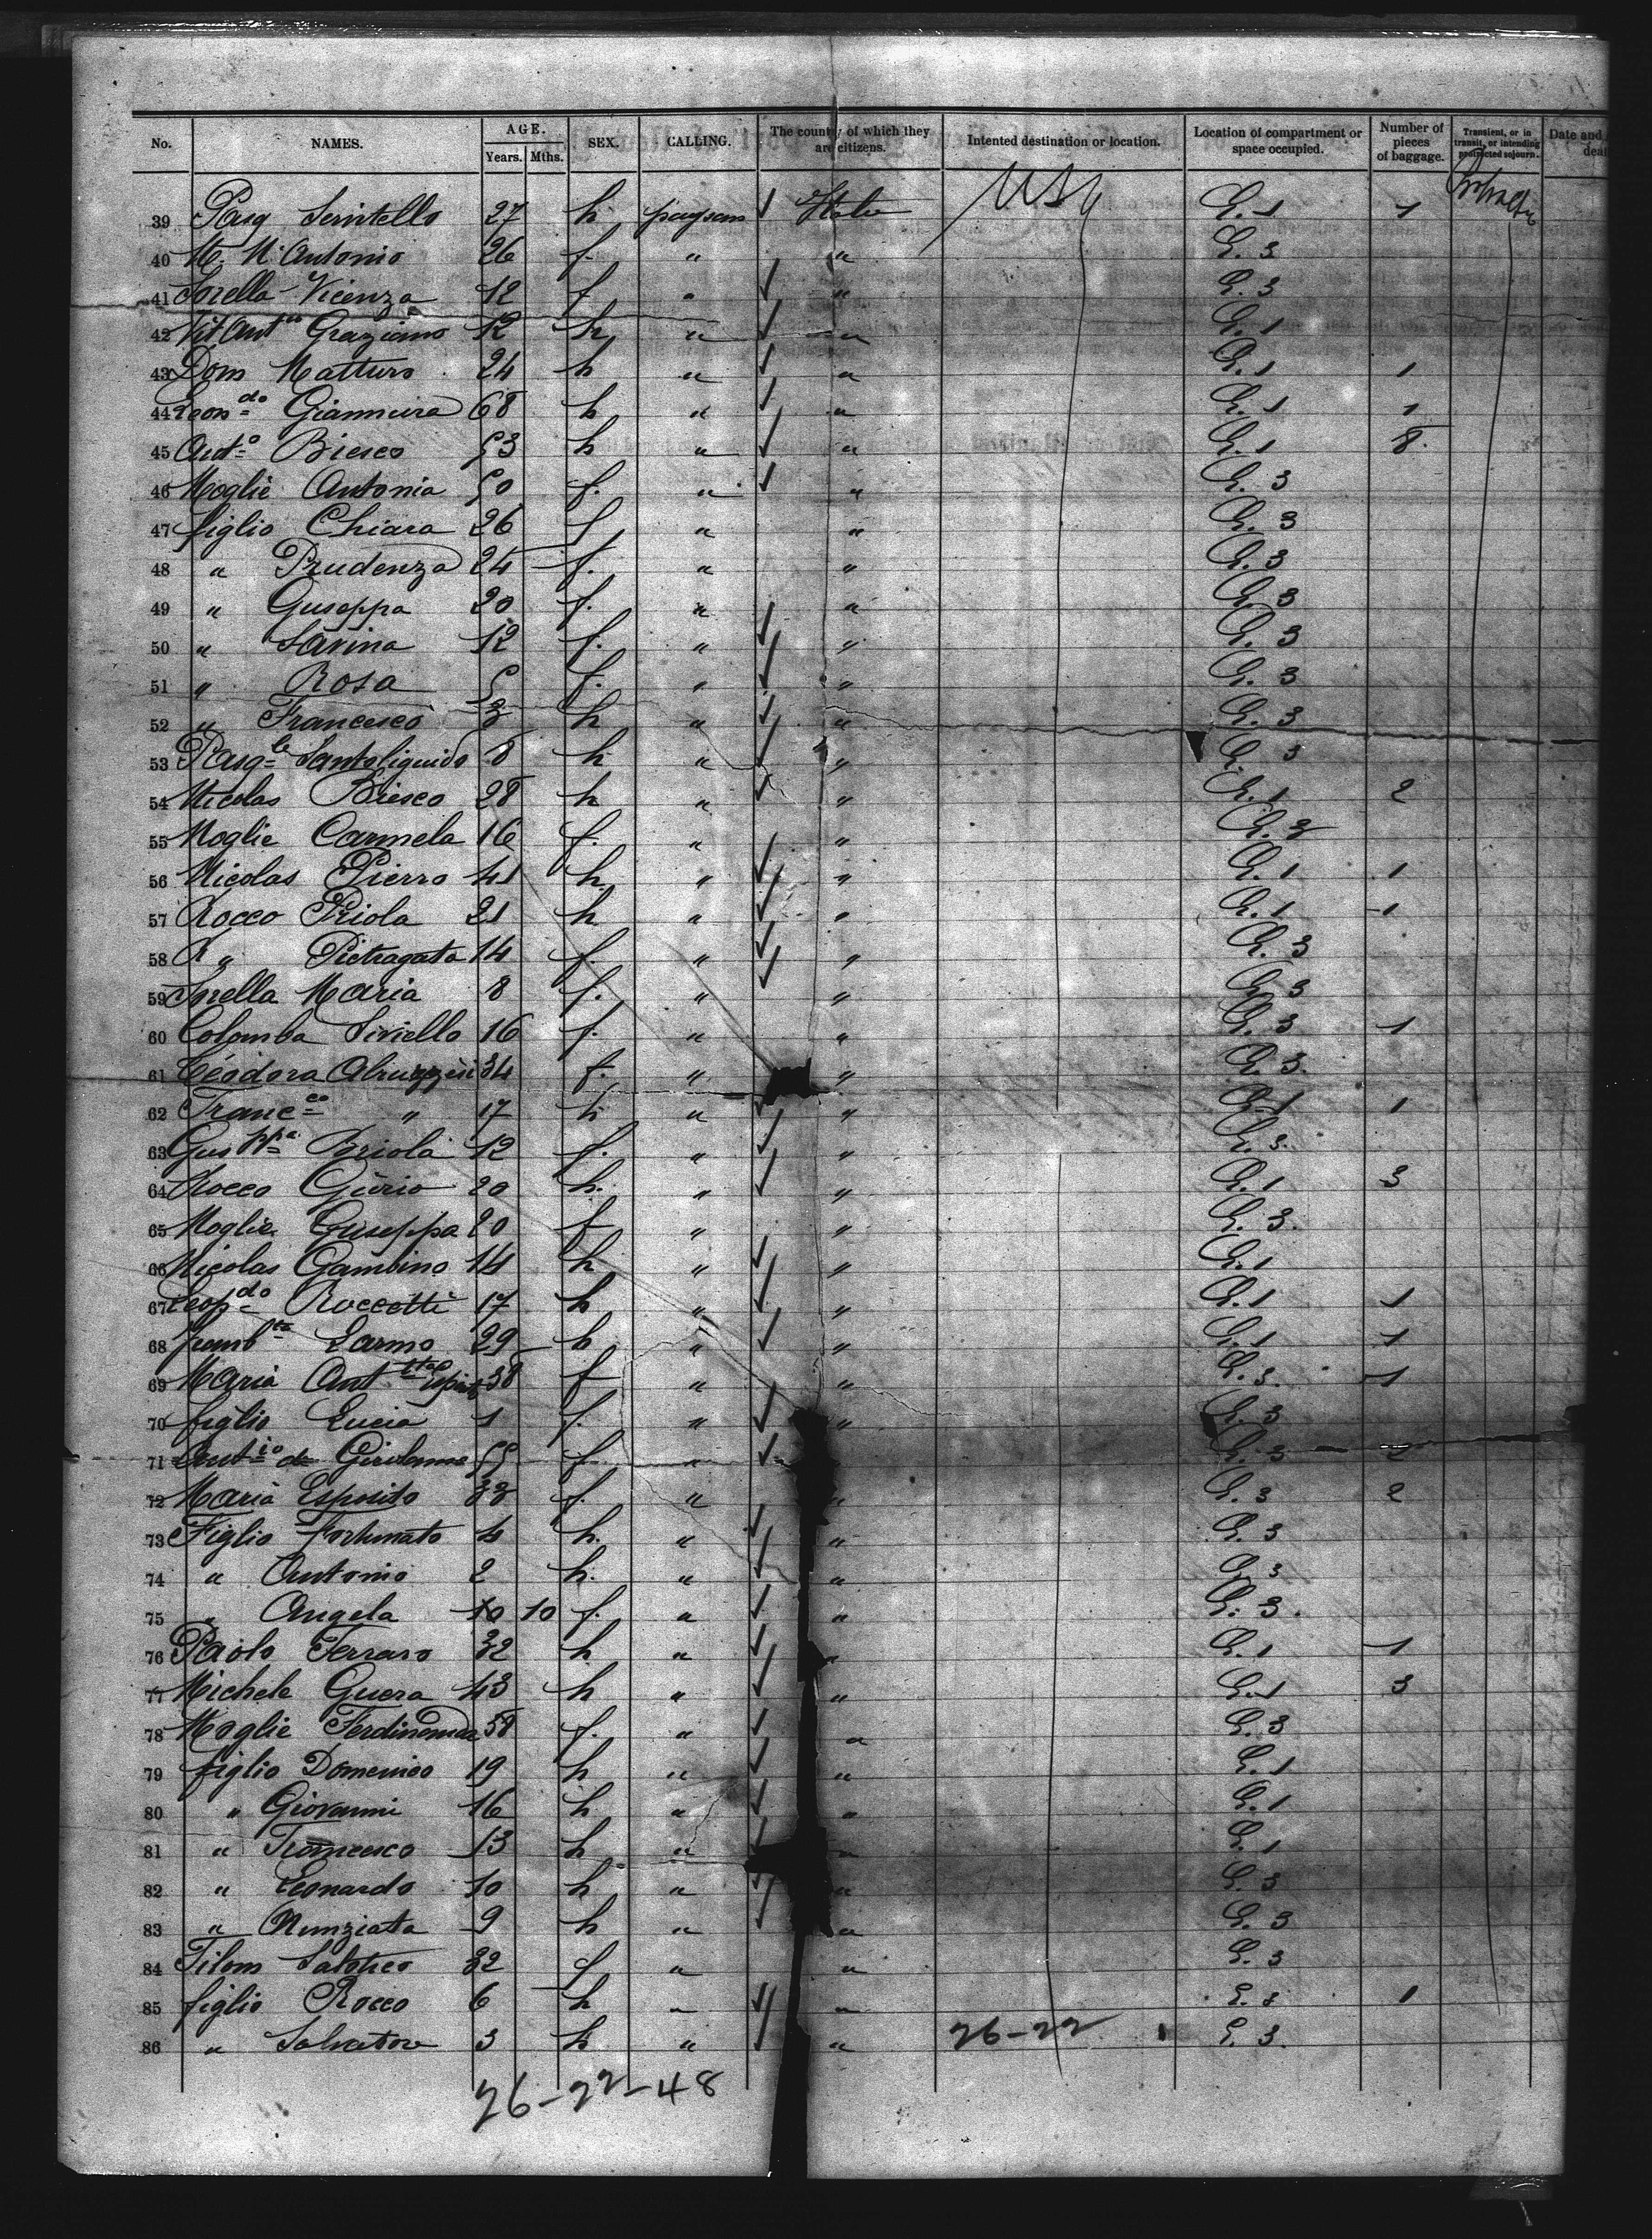 No. NAMES. AGE. Years. Mths. SEX. CALLING. The country of which they are citizens. Intented destination or location. Location of compartment or space occupied. Number of pieces of baggage. Transient, or in transit, or intending protracted sojourn. Date and
39 Pasq 27 h paysan Italie USA E. 1 1
40 M. N. Antonio 26 f. " " E. 3
41 Sorella Vicenza 12 f " " E. 3
42 Vit Ant Graziano 12 h " " E. 1
43 Dom Matturo 24 h " " E. 1 1
44 Leondo 68 h " " E. 1 1
45 Anto Biesco 53 h " " E. 1 8
46 Moglie Antonia 50 f. " " E. 3
47 figlio Chiara 26 f " " E. 3
48 " Prudenza 24 f. " " E. 3
49 " Guseppa 20 f. " " E. 3
50 " Savina 12 f. " " E. 3
51 " Rosa 5 f. " " E. 3
52 " Francesco 3 h " " E. 3
53 Pasqle Santoliquido 8 h " " E. 3
54 Nicolas Biesco 28 h " " E. 1 2
55 Moglie Carmela 16 f. " " E. 3
56 Nicolas Pierro 41 h " " E. 1 1
57 Rocco Priola 21 h " " E. 1 1
58 " Pietragata 14 f. " " E. 3
59 Sorella Maria 8 f. " " E. 3
60 Colomba Siviello 16 f. " " E. 3 1
61 Téodora 34 f. " " E. 3.
62 Francco " 17 h " " E. 1 1
63 Gusppa Briola 12 f. " " E. 3.
64 Rocco Gurio 20 h. " " E. 1 3
65 Moglie Guseppa 20 f " " E. 3.
66 Nicolas Gambino 14 h " " E. 1
67 Leopdo Roccotti 17 h " " E. 1 1
68 29 h " " E. 1 1
69 Maria Ant 38 f " " E. 3. 1
70 figlio Lucia 1 f. " " E. 3
71 Antio de Girolamo 55 f " " E. 3 2
72 Maria Esposito 33 f. " " E. 3 2
73 Figlio Fortunato 4 h. " " E. 3
74 " Antonio 2 h. " " E. 3
75 " Angela 10 10 f. " " E. 3.
76 Paolo Ferraro 32 h " " E. 1 1
77 Michele Guera 43 h " " E. 1 3
78 Moglie 38 f. " " E. 3
79 figlio Domenico 19 h " " E. 1
80 " Giovanni 16 h " " E. 1
81 " Francesco 13 h " " E. 1
82 " Leonardo 10 h " " E. 3
83 " Nunziata 9 h " " E. 3
84 Filom 32 f " " E. 3
85 figlio Rocco 6 h " " E. 3 1
86 " Salvatore 3 h " " 26-22 E. 3.
26-22-48